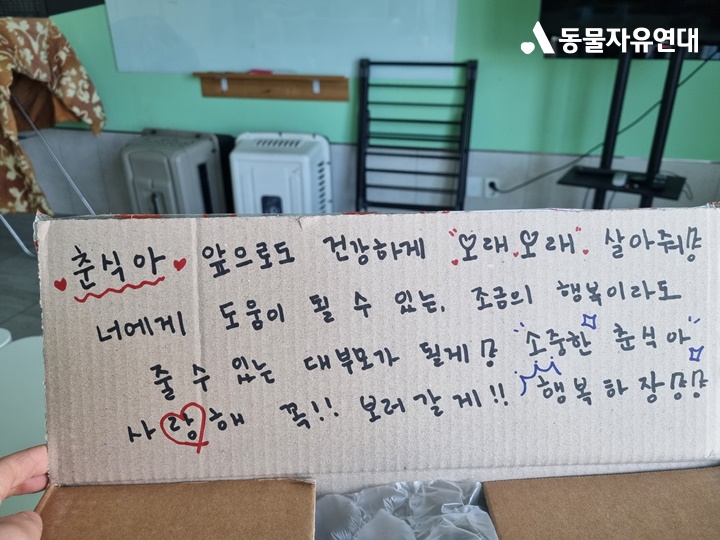 동물자유연대
춘식아 앞으로도 건강하게 "오래오래" 살아줘먕
너에게 도움이 될 수 있는, 조금의 행복이라도
줄 수 있는 대부모가 될게먕 "소중한 춘식아"
사랑해 꼭!! 보러갈게!! 행복하장먕먕